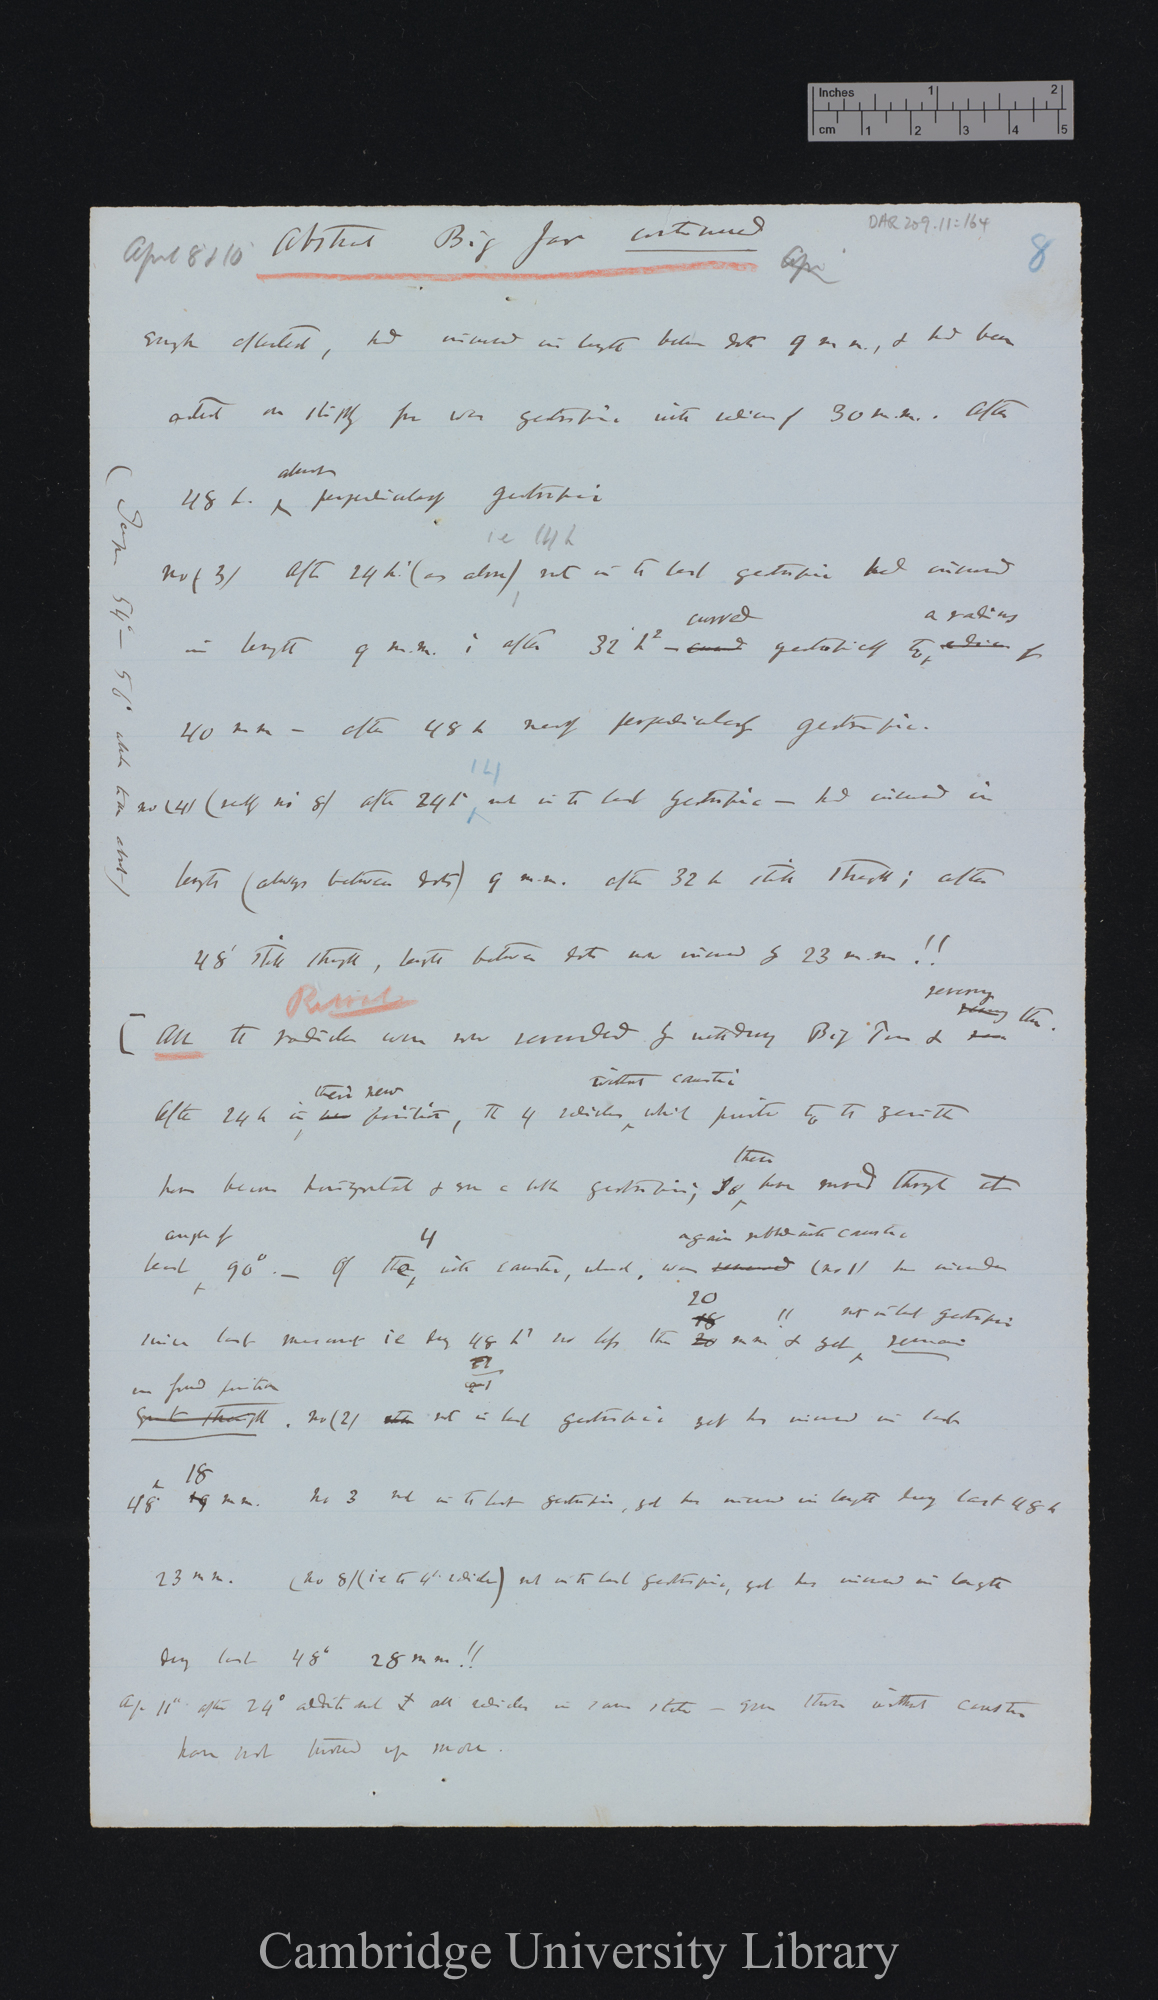 Inches 1 2
cm 1 2 3 4 5
DAR 209.11:164
April 8 & 10 Abstract Big Jar continued Apr 8
affected, had increased in length between dots 9 m m., & had been
acted on for was geotropic with radius of 30 m.m.. After
48 h. almost perpendicularly geotropic
ie 14 h
No (3) After 24 h. (as above), not in the least geotropic had increased
in length 9 m.m. ; after 32 h - curved geotropically to a radius of
40 mm - after 48 h nearly perpendicularly geotropic.
14
No (4) (really no 8) after 24 h not in the least geotropic — had increased in
length (always between dots) 9 m.m. after 32 h still straight; after
48 still straight, length between dots now increased by 23 m.m !!
(Temp 54° — 56° whole time about)
Result
[All the radicles were now reversed by Big Jar & reversing them.
After 24 h in their new position, the 4 radicles, without caustic which pointed to the zenith
have become horizontal & some a little geotropic; so these have moved through at
least angle of 90°. — Of the 4 with caustic, which were again rubbed with caustic (no 1) has increased
since last measured ie during 48 h no less than 20 mm !! & yet not in least geotropic remain
in fixed position
. No (2) not in least geotropic yet has increased in last
48 h 18 mm. No 3 not in the least geotropic, yet has increased in length during last 48 h
23 mm. (No 8) (ie the 4 radicle) not in the least geotropic, yet has increased in length
during last 48 28 m m !!
Ap. 11 after 24 additional all radicles in same state — even those without caustic
have not turned up more.
Cambridge University Library